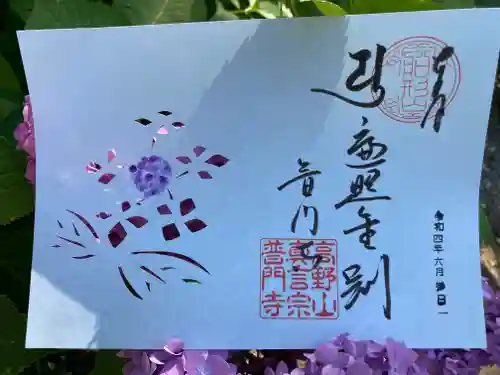 船形山
令和四年六月吉日
遍照金剛
普門寺
高野山
真言宗
普門寺